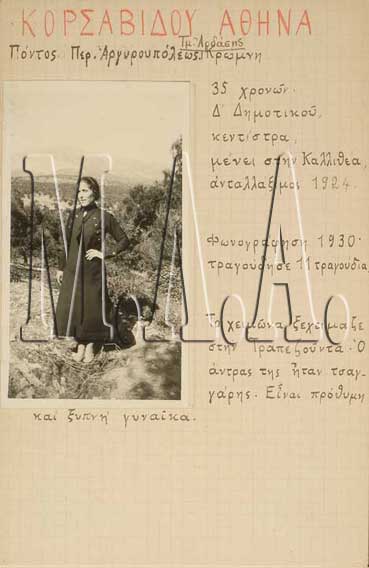 ΚΟΡΣΑΒΙΔΟΥ ΑΘΗΝΑ
Τμ. Αρδάσης
Πόντος. Περ. Ἀργυρουπόλεως. Κρώμνη
35 χρονῶν.
Δ' Δημοτικοῦ,
κεντίστρα,
μένει στὴν Καλλιθέα,
ἀνταλλάξιμος 1924.
Φωνογράφηση 1930.
τραγούδησε 11 τραγούδια
Τὸ χειμώνα ξεχείμαζε
στὴν Τραπεζούντα. Ὁ
ἄντρας της ἦταν τσαγ-
γάρης. Εἶναι πρόθυμη
καὶ ξυπνὴ γυναῖκα.
ΜΛΑ